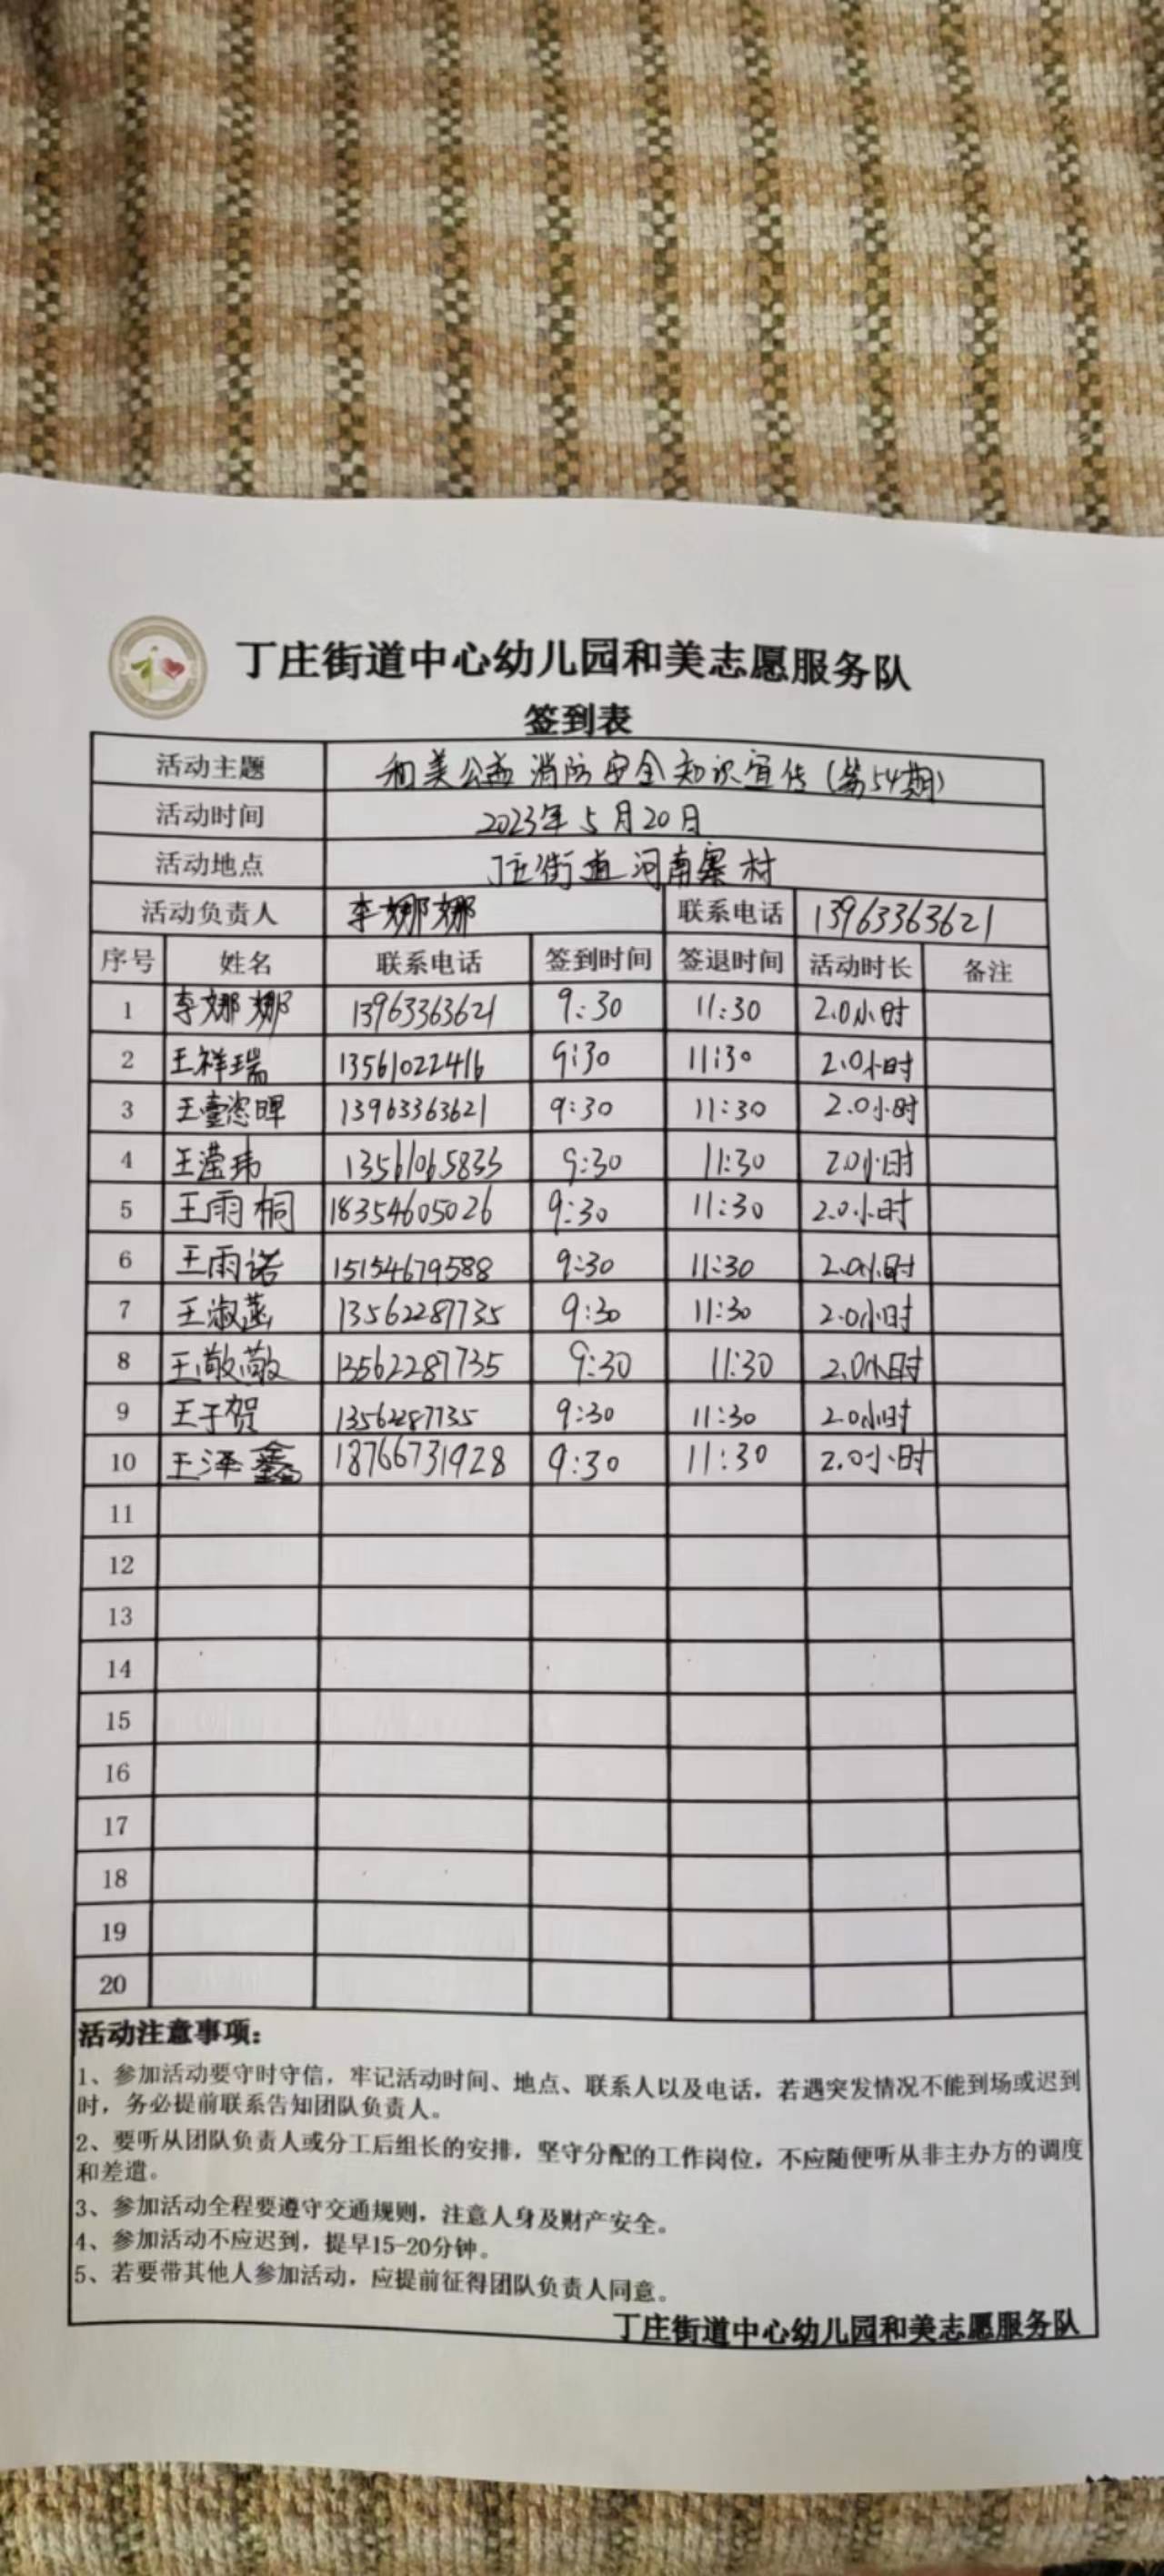 丁庄街道中心幼儿园和美志愿服务队
签到表
活动主题 和美公益 消防安全知识宣传(第54期)
活动时间 2023年5月20日
活动地点 丁庄街道河南寨村
活动负责人 李娜娜 联系电话 13963363621
序号 姓名 联系电话 签到时间 签退时间 活动时长 备注
1 李娜娜 13963363621 9:30 11:30 2.0小时
2 王祥瑞 13561022416 9:30 11:30 2.0小时
3 13963363621 9:30 11:30 2.0小时
4 王滢玮 13561065833 9:30 11:30 2.0小时
5 王雨桐 18354605026 9:30 11:30 2.0小时
6 王雨诺 15154679588 9:30 11:30 2.0小时
7 王淑菡 13562287735 9:30 11:30 2.0小时
8 王敬敬 13562287735 9:30 11:30 2.0小时
9 王于贺 13562287735 9:30 11:30 2.0小时
10 王泽鑫 18766731928 9:30 11:30 2.0小时
11
12
13
14
15
16
17
18
19
20
活动注意事项：
1、参加活动要守时守信，牢记活动时间、地点、联系人以及电话，若遇突发情况不能到场或迟到
时，务必提前联系告知团队负责人。
2、要听从团队负责人或分工后组长的安排，坚守分配的工作岗位，不应随便听从非主办方的调度
和差遣。
3、参加活动全程要遵守交通规则，注意人身及财产安全。
4、参加活动不应迟到，提早15-20分钟。
5、若要带其他人参加活动，应提前征得团队负责人同意。
丁庄街道中心幼儿园和美志愿服务队